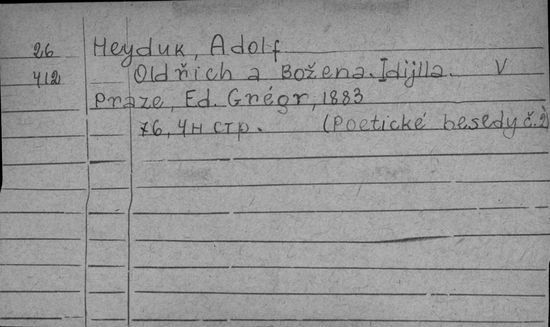 26 Heyduk, Adolf
412 Oldřich a Božena. Idijlla. V
Praze, Ed. Grégr, 1883
76, 4н стр. (Poetické besedy č. 2)